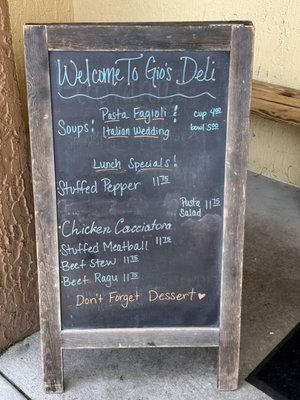 Welcome To Gio's Deli
Pasta Fagioli !
cup 4.00
Soups! Italian Wedding
bowl 5.00
Lunch Specials!
Stuffed Pepper 11.75
Pasta
Salad
11.75
Chicken Cacciatora
Stuffed Meatball 11.75
Beef Stew 11.75
Beef Ragu 11.75
Don't Forget Dessert ♥